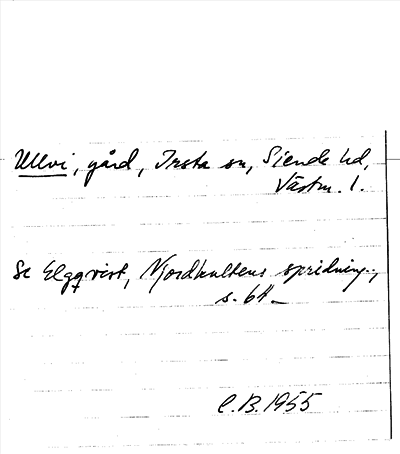 Ullvi, gård, Irsta sn, Siende hd,
Västm. l.
Se Elgqvist, Njordkultens spridning..,
s. 64.
C.B. 1955